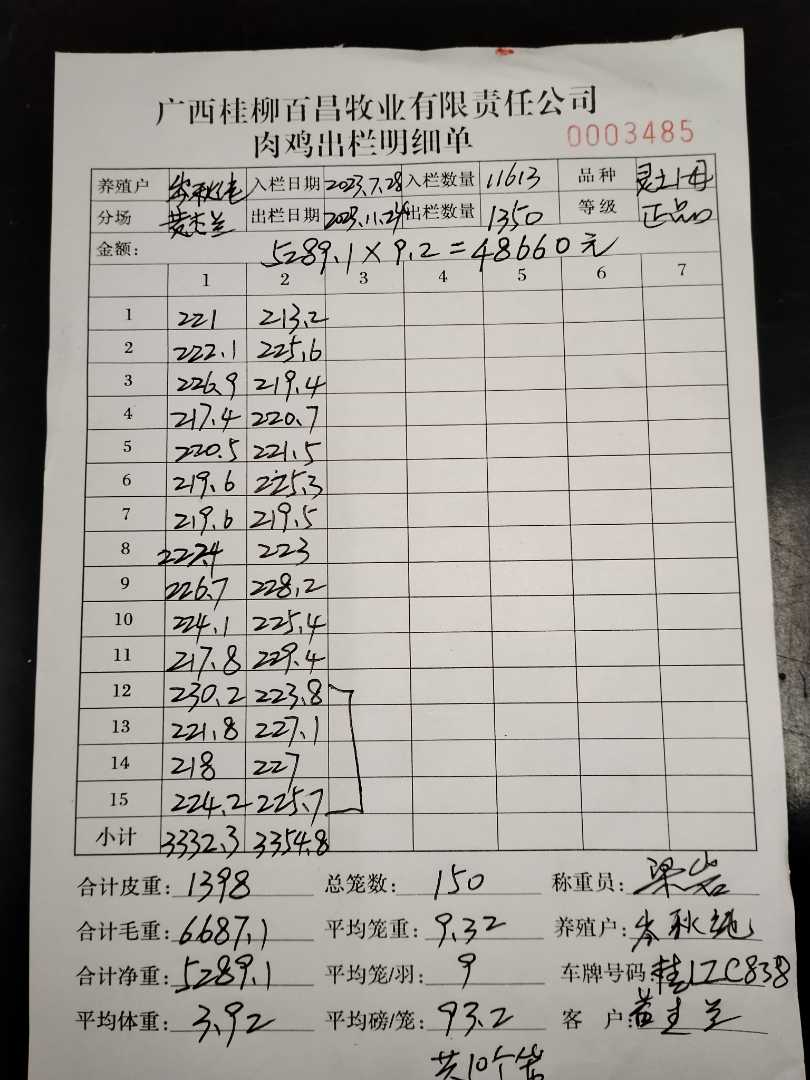 广西桂柳百昌牧业有限责任公司
肉鸡出栏明细单 0003485
养殖户 岑秋纯 入栏日期 2023.7.28 入栏数量 11613 品种 灵土1号
分场 黄杰兰 出栏日期 2023.11.24 出栏数量 1350 等级 正品
金额: 5289.1×9.2=48660元
1 2 3 4 5 6 7
1 221 213.2
2 222.1 225.6
3 226.9 219.4
4 217.4 220.7
5 220.5 221.5
6 219.6 225.3
7 219.6 219.5
8 227.4 223
9 226.7 228.2
10 224.1 225.4
11 217.8 229.4
12 230.2 223.8
13 221.8 227.1
14 218 227
15 224.2 225.7
小计 3332.3 3354.8
合计皮重: 1398 总笼数: 150 称重员: 梁岩
合计毛重: 6687.1 平均笼重: 9.32 养殖户: 岑秋纯
合计净重: 5289.1 平均笼/羽: 9 车牌号码: 桂LZC838
平均体重: 3.92 平均磅/笼: 93.2 客 户: 黄杰兰
共10个